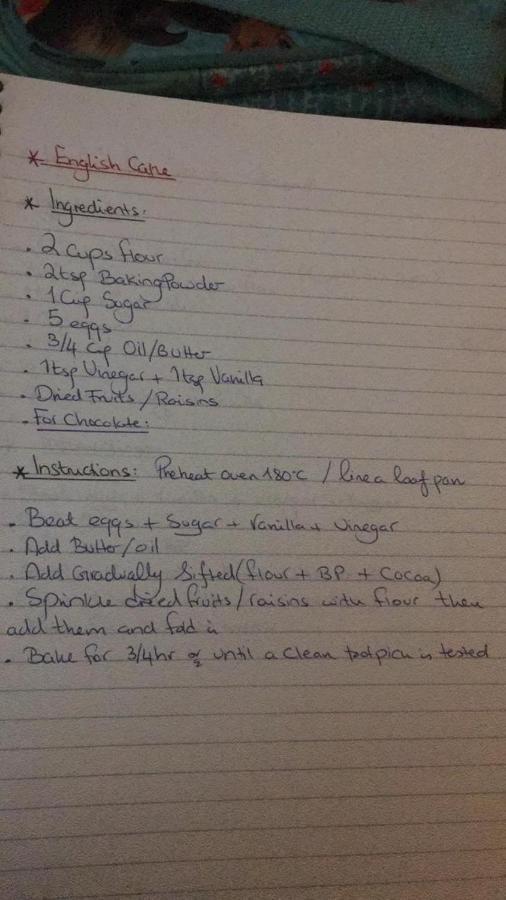 * English Cake
* Ingredients:
. 2 cups flour
. 2tsp Baking Powder
. 1 Cup Sugar
. 5 eggs
. 3/4 Cup Oil/Butter
. 1tsp Vinegar + 1tsp Vanilla
. Dried Fruits / Raisins
. For Chocolate:
* Instructions: Preheat oven 180°C / line a loaf pan
. Beat eggs + Sugar + Vanilla + Vinegar
. Add Butter/oil
. Add Gradually Sifted (flour + BP + Cocoa)
. Sprinkle dried fruits / raisins with flour then
add them and fold in
. Bake for 3/4hr or until a clean toothpick is tested